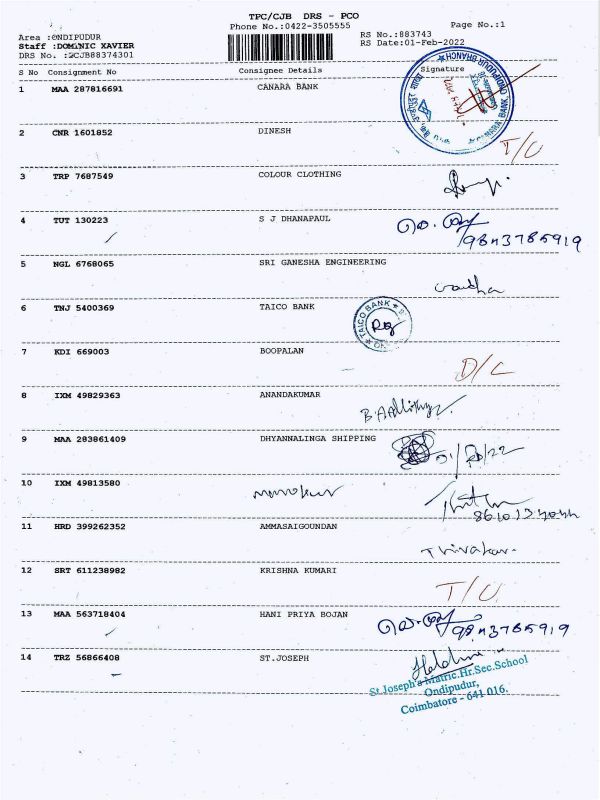 TPC/CJB DRS - PCO
Phone No.:0422-3505555
Page No.:1
Area :ONDIPUDUR
RS No.:883743
Staff :DOMINIC XAVIER
RS Date:01-Feb-2022
DRS No. :2CJB88374301
S No Consignment No Consignee Details Signature
1 MAA 287816691 CANARA BANK
2 CNR 1601852 DINESH
T/C
3 TRP 7687549 COLOUR CLOTHING
4 TUT 130223 S J DHANAPAUL
5 NGL 6768065 SRI GANESHA ENGINEERING
6 TNJ 5400369 TAICO BANK
TAICO BANK
7 KDI 669003 BOOPALAN
D/C
8 IXM 49829363 ANANDAKUMAR
9 MAA 283861409 DHYANNALINGA SHIPPING
10 IXM 49813580
11 HRD 399262352 AMMASAIGOUNDAN
12 SRT 611238982 KRISHNA KUMARI
T/C
13 MAA 563718404 HANI PRIYA BOJAN
14 TRZ 56866408 ST.JOSEPH
St.Joseph's Matric.Hr.Sec.School
Ondipudur,
Coimbatore - 641 016.